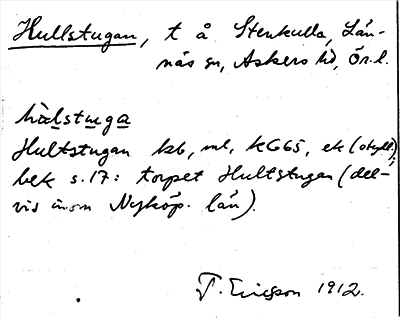 Hullstugan, t å Stenkulla, Län-
näs sn, Askers hd, Ör. l.
hàlstuga
Hultstugan kb, ml, kG65, ek (otyll),
bek s. 17: torpet Hultstugan (del-
vis inom Nyköp. län).
T. Ericsson 1912.